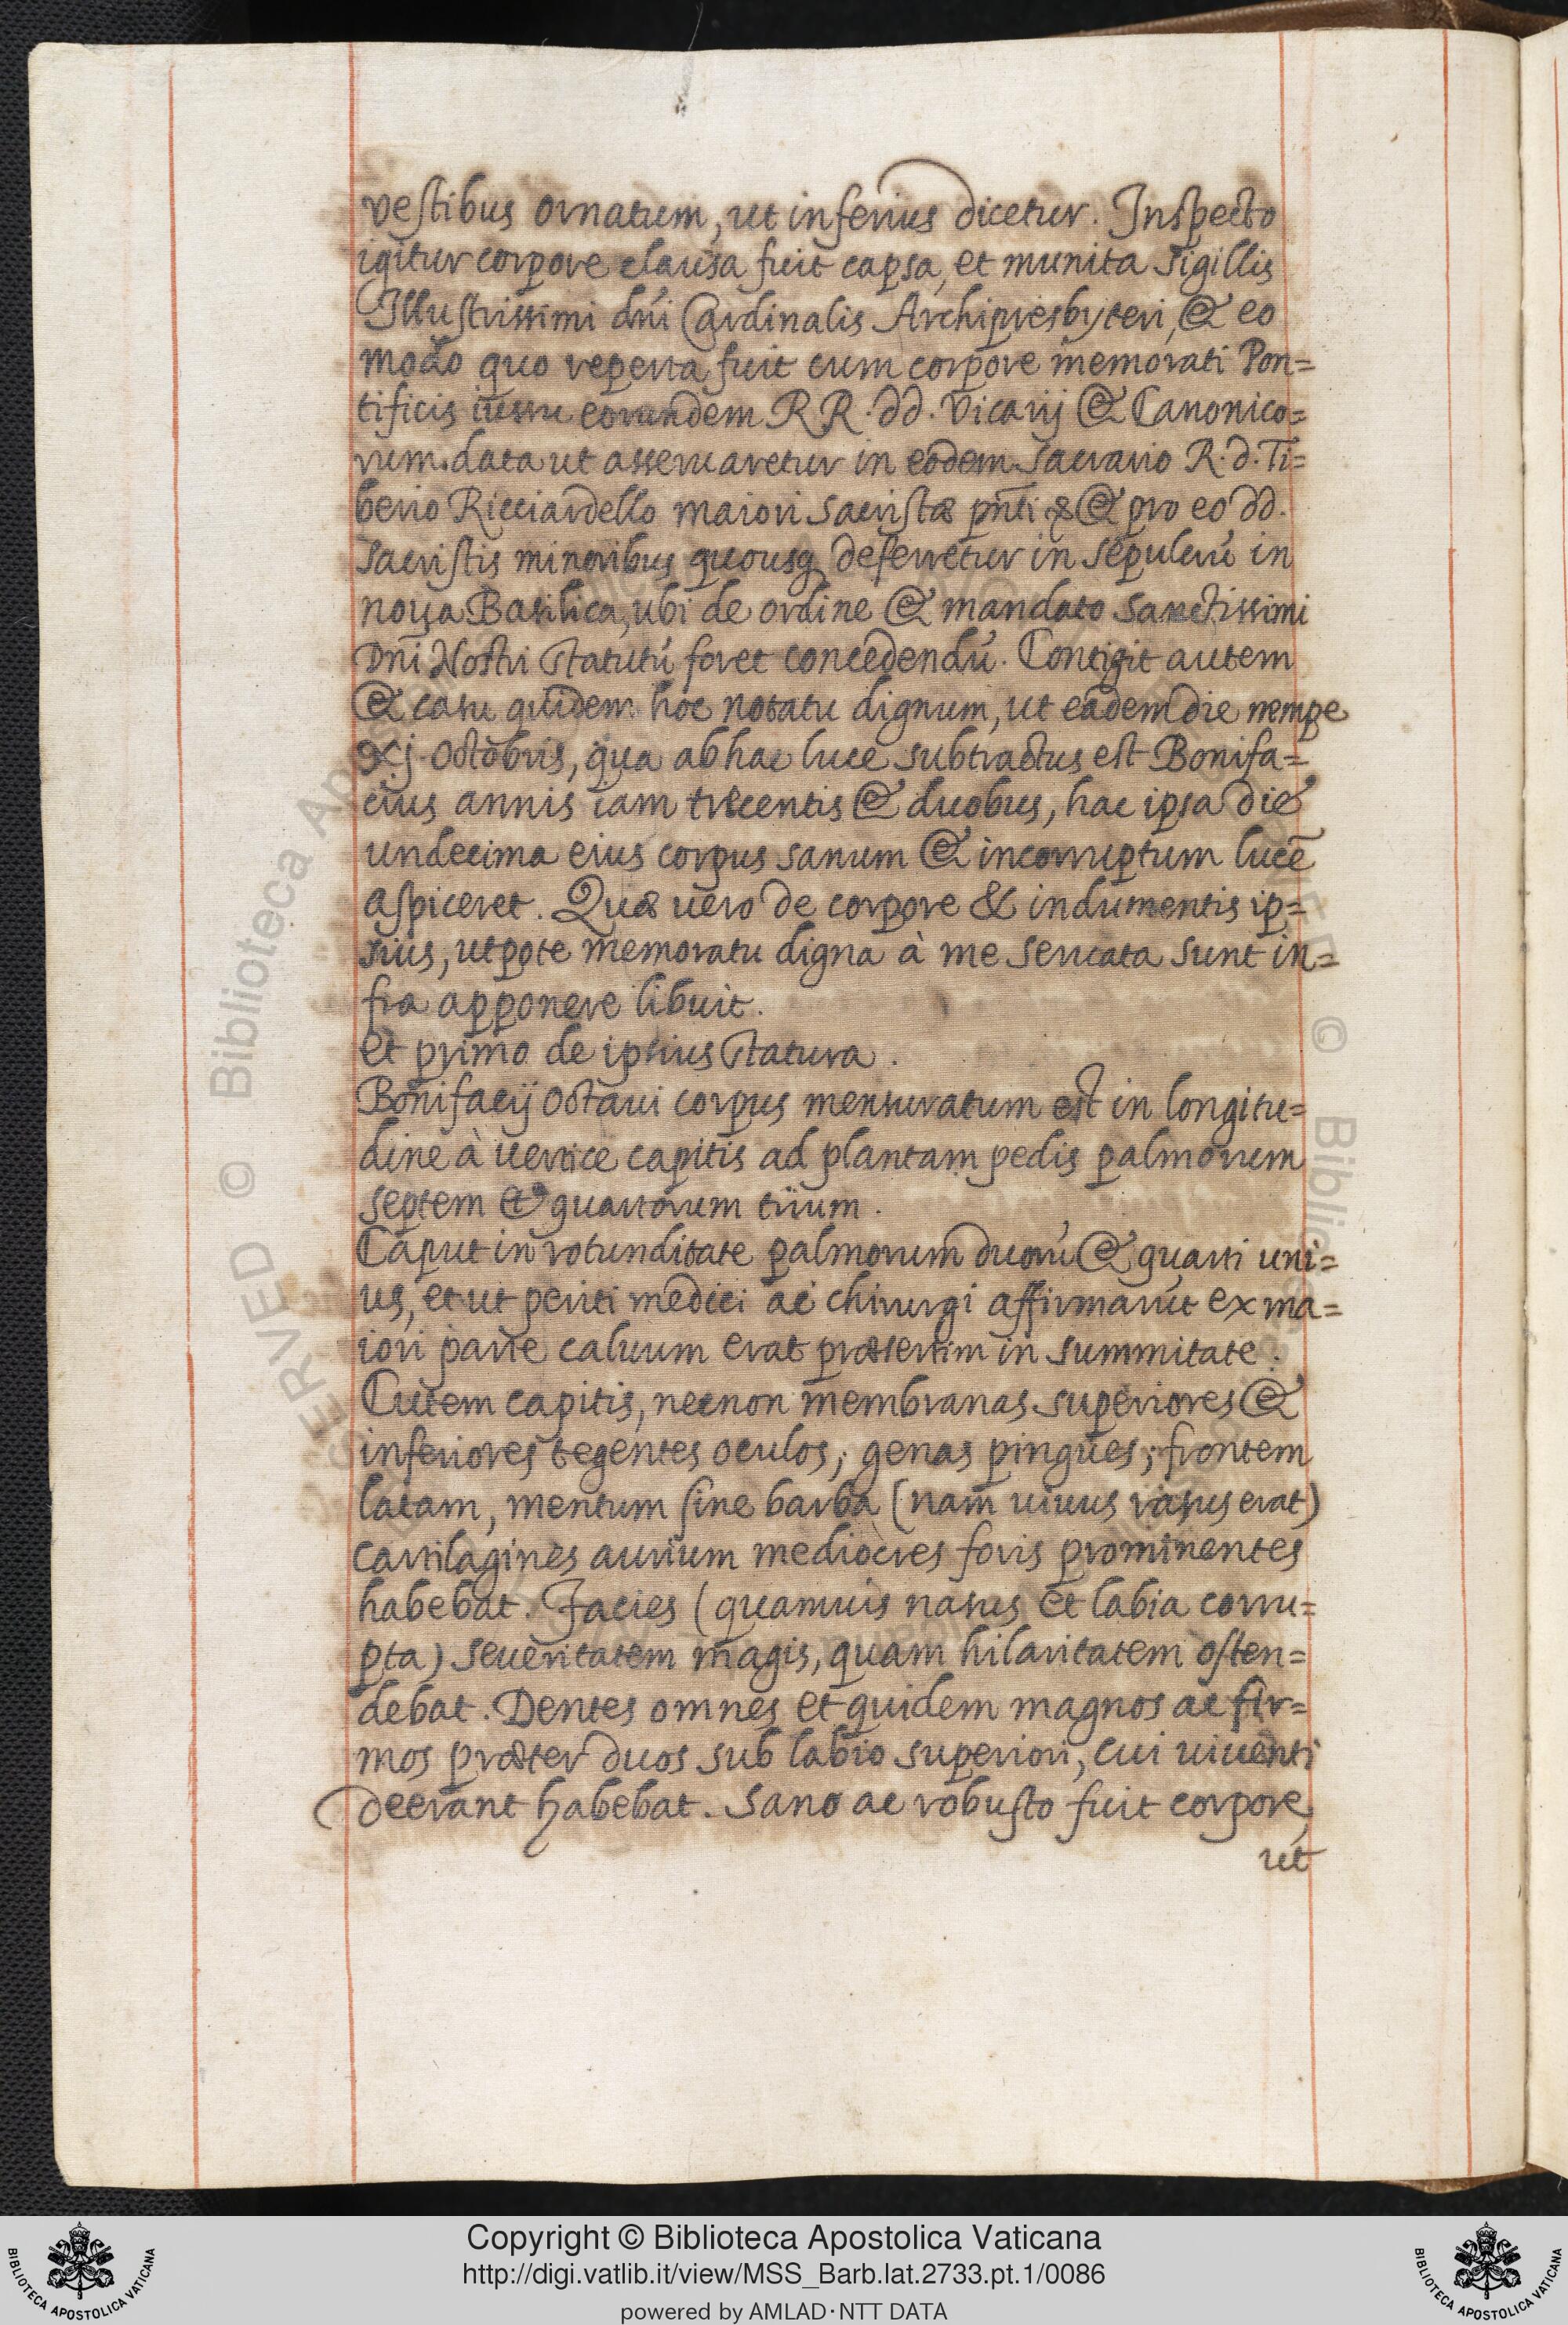 vestibus ornatum, ut inferius dicetur. Inspecto
igitur corpore clausa fuit capsa, et munita sigillis
Illustrissimi dńi Cardinalis Archipresbyteri, & eo
modo quo reperta fuit cum corpore memorati Pon=
tificis iussu eorundem RR. dd. Vicarij & Canonico=
rum data ut asseruaretur in eodem sacrario R. d. Ti=
berio Ricciardello maiori sacristæ pñti & pro eo dd.
sacristis minoribus quousq deferretur in sepulcrú in
noua Basilica, ubi de ordine & mandato sanctissimi
Dñi Nostri statutú foret concedendú. Contigit autem
& casu quidem hoc notatu dignum, ut eadem die nempe
xj. Octobris, qua ab hac luce subtractus est Bonifa=
cius annis iam trecentis & duobus, hac ipsa die
undecima eius corpus sanum & incorruptum lucē
aspiceret. Quæ uero de corpore & indumentis ip=
sius, utpote memoratu digna à me seruata sunt in=
fra apponere libuit.
Et primo de ipsius statura.
Bonifacij Octaui corpus mensuratum est in longitu=
dine à uertice capitis ad plantam pedis palmorum
septem & quartorum trium.
Caput in rotunditate palmorum duorú & quarti uni=
us, et ut periti medici ac chirurgi affirmarút ex ma=
iori parte caluum erat præsertim in summitate.
Cutem capitis, necnon membranas superiores &
inferiores tegentes oculos, genas pingues, frontem
latam, mentum sine barba (nam uiuus rasus erat)
cartilagines aurium mediocres foris prominentes
habebat. Facies (quamuis nasus et labia corru=
pta) seueritatem magis, quam hilaritatem osten=
debat. Dentes omnes et quidem magnos ac fir=
mos præter duos sub labio superiori, cui uiuenti
deerant habebat. Sano ac robusto fuit corpore,
ut
Copyright © Biblioteca Apostolica Vaticana
http://digi.vatlib.it/view/MSS_Barb.lat.2733.pt.1/0086
powered by AMLAD·NTT DATA
BIBLIOTECA APOSTOLICA VATICANA
BIBLIOTECA APOSTOLICA VATICANA